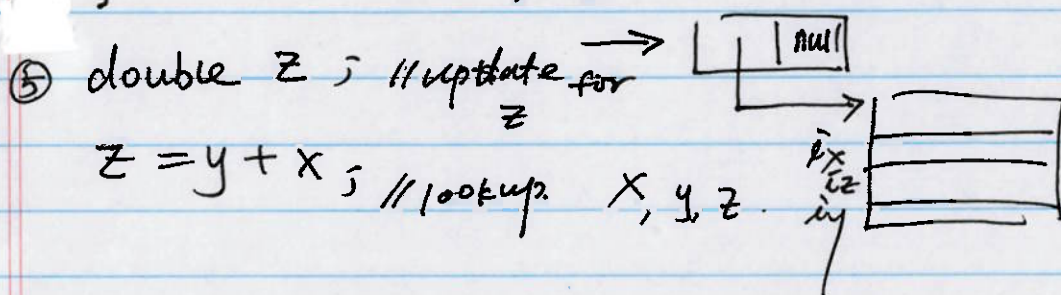 ⑤ double z ; //update for z → null
z = y + x ; //lookup. x, y, z.
ix
iz
iy